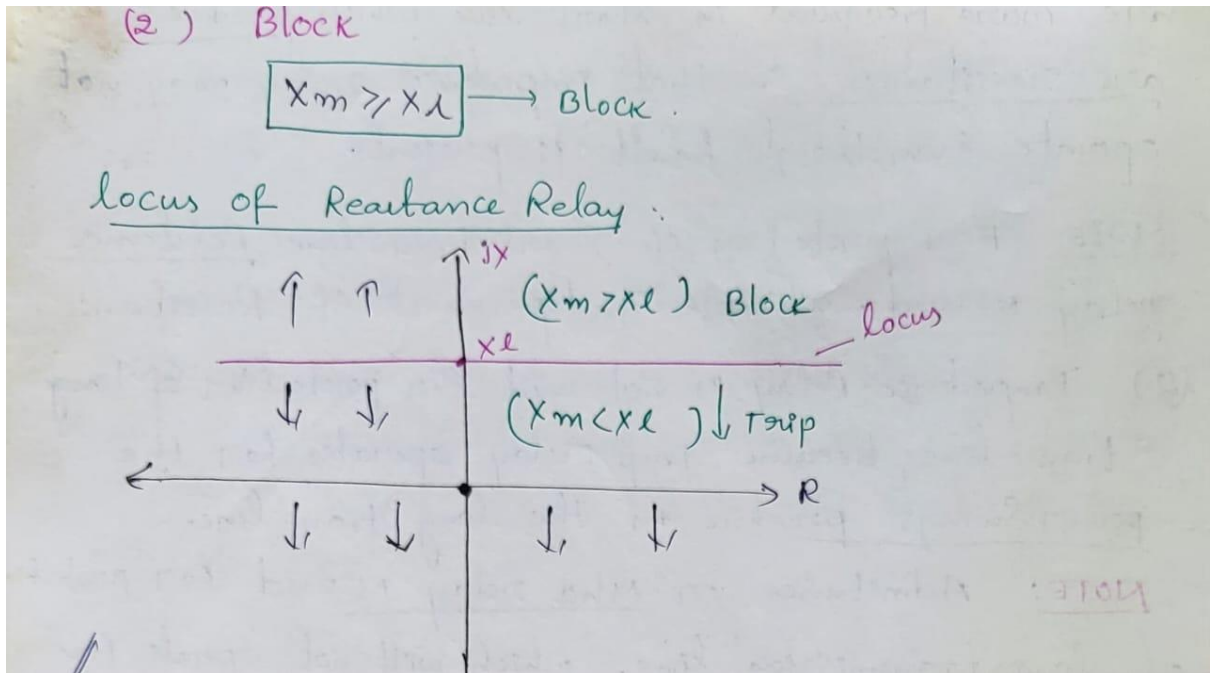 (2) Block
Xm ≥ Xl → Block.
locus of Reactance Relay :
jx
(Xm > Xl) Block
locus
Xl
(Xm < Xl) ↓ Trip
R